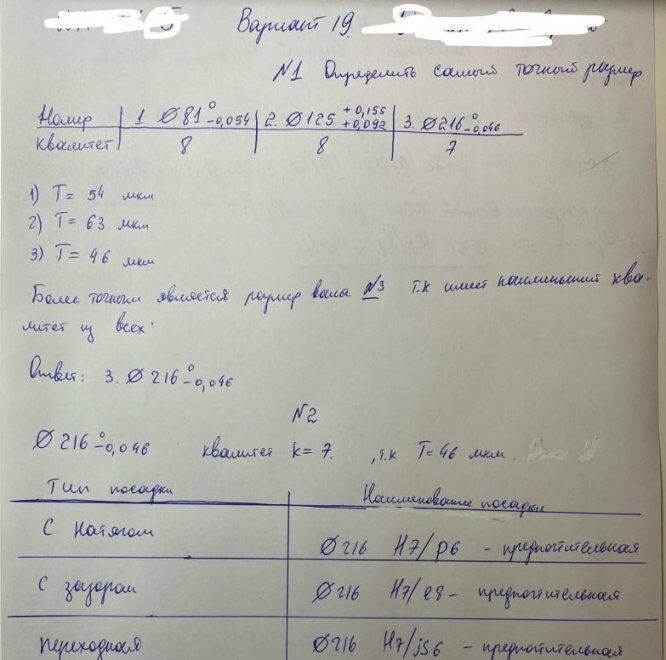 Вариант 19
№1 Определить самый точный размер
Номер | 1. Ø81 0 -0,054 | 2. Ø125 +0,155 +0,092 | 3. Ø216 0 -0,046
квалитет | 8 | 8 | 7
1) T = 54 мкм
2) T = 63 мкм
3) T = 46 мкм
Более точным является размер вала №3 т.к имеет наименьший ква-
литет из всех.
Ответ: 3. Ø216 0 -0,046
№2
Ø216 0 -0,046 квалитет k = 7. , т.к T = 46 мкм.
Тип посадки | Наименование посадки
С натягом | Ø216 H7/p6 - предпочтительная
С зазором | Ø216 H7/e8 - предпочтительная
переходная | Ø216 H7/js6 - предпочтительная